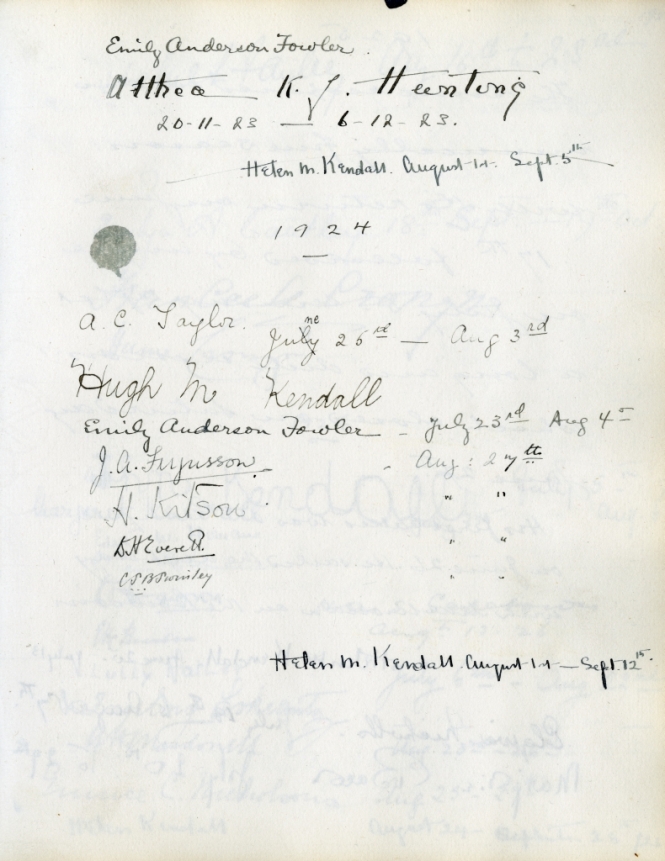 Emily Anderson Fowler.
Althea K. J. Hunting
20-11-23 — 6-12-23.
Helen M. Kendall. August 1st. Sept. 5th
1924
A. C. Taylor. June 26th — Aug 3rd
Hugh M Kendall
Emily Anderson Fowler - July 23rd Aug 4th
J. A. Fergusson. - Aug: 27th
H. Kitson. " "
D H Everett. " "
" "
Helen M. Kendall. August 1st — Sept. 12th.